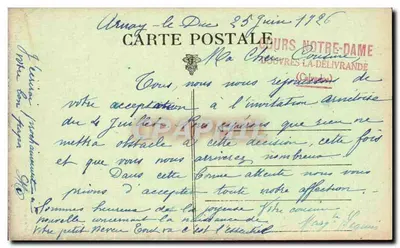 Arnay-le-Duc 25 juin 1926
CARTE POSTALE
Ma Chère Cousine
COURS NOTRE-DAME
DOUVRES-LA-DÉLIVRANDE
(Calvados)
Tous nous nous rejouissons de
votre acceptation à l'invitation
du 4 juillet. Nous espérons que rien ne
mettra obstacle à cette décision, cette fois
et que vous nous arriverez nombreux
Dans cette attente nous vous
prions d'accepter toute notre affection.
Sommes heureux de la joyeuse
nouvelle concernant la naissance de
votre petit neveu
c'est l'essentiel
Votre cousin
J'écrirai prochainement à
votre bon papa